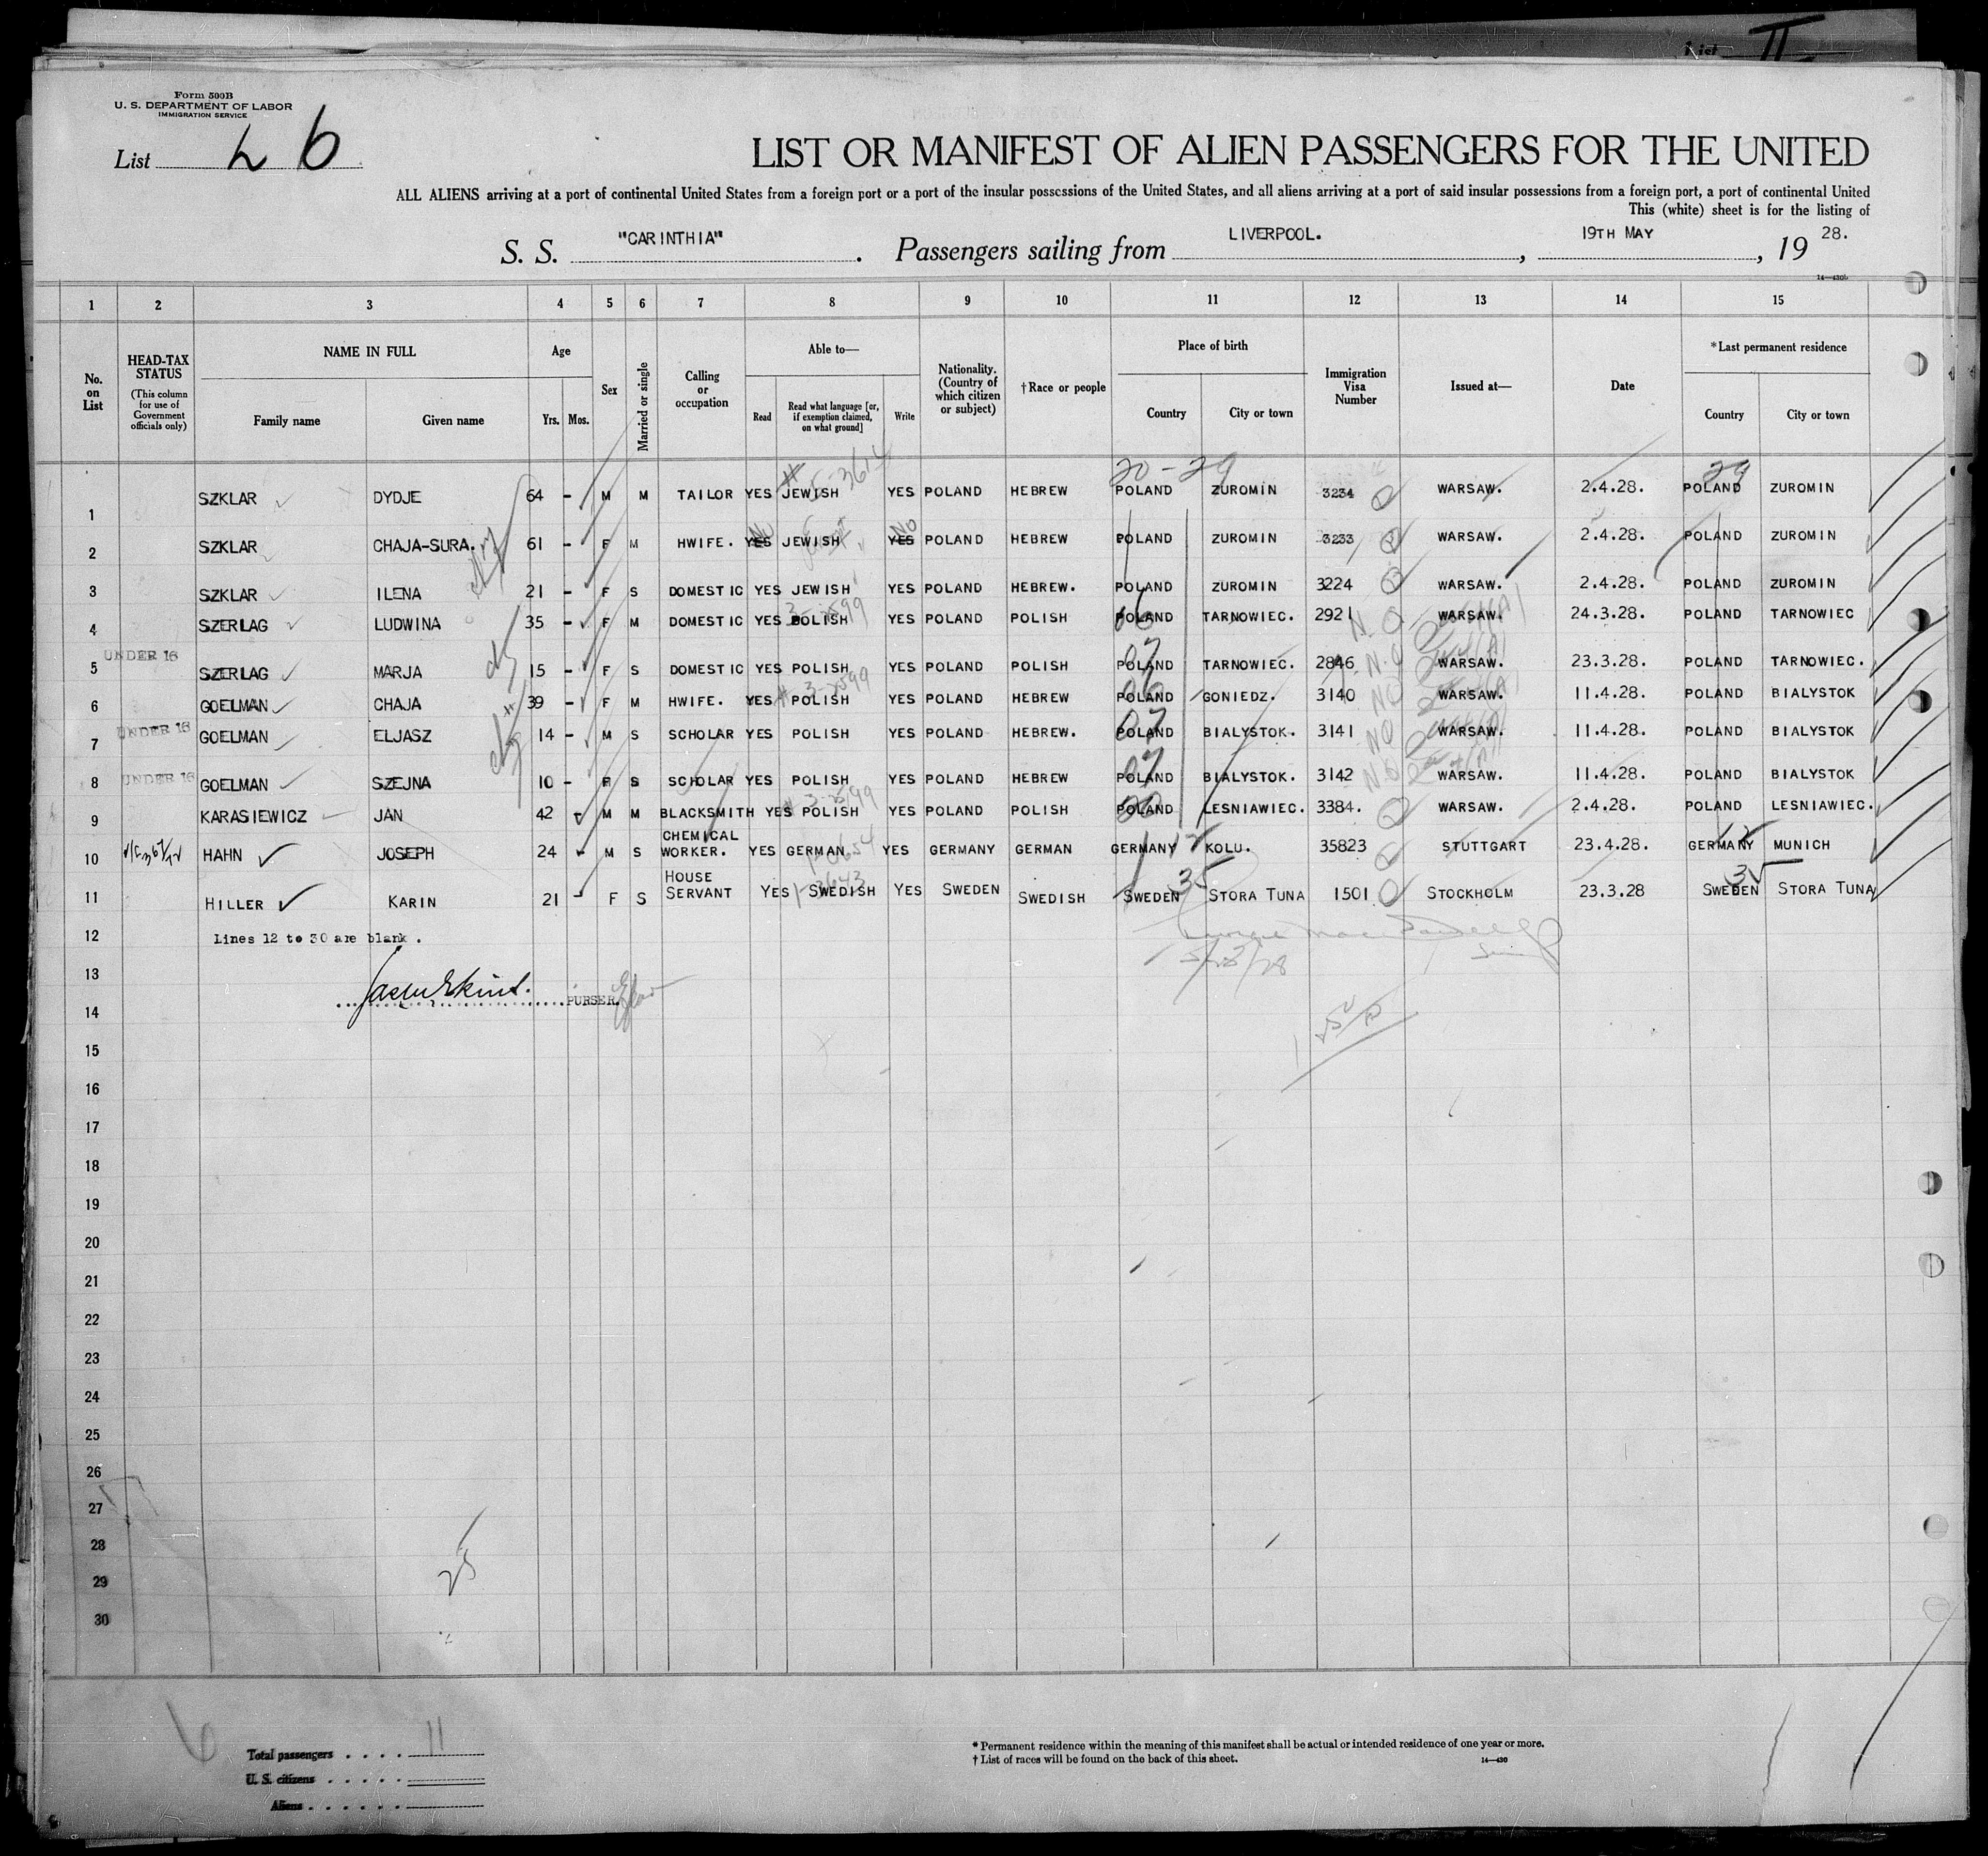 List II
Form 500B
U. S. DEPARTMENT OF LABOR
IMMIGRATION SERVICE
List 6
LIST OR MANIFEST OF ALIEN PASSENGERS FOR THE UNITED
ALL ALIENS arriving at a port of continental United States from a foreign port or a port of the insular possessions of the United States, and all aliens arriving at a port of said insular possessions from a foreign port, a port of continental United
This (white) sheet is for the listing of
S. S. "CARINTHIA". Passengers sailing from LIVERPOOL., 19TH MAY, 19 28.
14—430b
1 2 3 4 5 6 7 8 9 10 11 12 13 14 15
No. on List
HEAD-TAX STATUS (This column for use of Government officials only)
NAME IN FULL Family name Given name
Age Yrs. Mos.
Sex
Married or single
Calling or occupation
Able to— Read Read what language [or, if exemption claimed, on what ground] Write
Nationality. (Country of which citizen or subject)
†Race or people
Place of birth Country City or town
Immigration Visa Number
Issued at—
Date
*Last permanent residence Country City or town
20-29 29
1 SZKLAR DYDJE 64 - M M TAILOR YES JEWISH YES POLAND HEBREW POLAND ZUROMIN 3234 WARSAW. 2.4.28. POLAND ZUROMIN
2 SZKLAR CHAJA-SURA. 61 - F M HWIFE. YES No JEWISH YES NO POLAND HEBREW POLAND ZUROMIN 3233 WARSAW. 2.4.28. POLAND ZUROMIN
3 SZKLAR ILENA 21 - F S DOMESTIC YES JEWISH YES POLAND HEBREW. POLAND ZUROMIN 3224 WARSAW. 2.4.28. POLAND ZUROMIN
4 SZERLAG LUDWINA 35 - F M DOMESTIC YES POLISH YES POLAND POLISH POLAND 06 TARNOWIEC. 2921 N.O WARSAW. 24.3.28. POLAND TARNOWIEC
5 UNDER 16 SZERLAG MARJA 15 - F S DOMESTIC YES POLISH YES POLAND POLISH POLAND 07 TARNOWIEC. 2846 N.O WARSAW. 23.3.28. POLAND TARNOWIEC.
6 GOELMAN CHAJA 39 - F M HWIFE. YES POLISH YES POLAND HEBREW POLAND 06 GONIEDZ. 3140 NO WARSAW. 11.4.28. POLAND BIALYSTOK
7 UNDER 16 GOELMAN ELJASZ 14 - M S SCHOLAR YES POLISH YES POLAND HEBREW. POLAND 07 BIALYSTOK. 3141 NO WARSAW. 11.4.28. POLAND BIALYSTOK
8 UNDER 16 GOELMAN SZEJNA 10 - F S SCHOLAR YES POLISH YES POLAND HEBREW POLAND 07 BIALYSTOK. 3142 NO WARSAW. 11.4.28. POLAND BIALYSTOK
9 KARASIEWICZ JAN 42 - M M BLACKSMITH YES POLISH YES POLAND POLISH POLAND 20 LESNIAWIEC. 3384. WARSAW. 2.4.28. POLAND LESNIAWIEC.
10 HAHN JOSEPH 24 - M S CHEMICAL WORKER. YES GERMAN YES GERMANY GERMAN GERMANY 12 KOLU. 35823 STUTTGART 23.4.28. GERMANY 12 MUNICH
11 HILLER KARIN 21 - F S HOUSE SERVANT YES SWEDISH YES SWEDEN SWEDISH SWEDEN 35 STORA TUNA 1501 STOCKHOLM 23.3.28 SWEDEN 35 STORA TUNA
12 Lines 12 to 30 are blank.
5/28/28
13
PURSER.
14
15
16
17
18
19
20
21
22
23
24
25
26
27
28
29
30
6
Total passengers . . . . 11
U. S. citizens . . . . .
Aliens . . . . . .
* Permanent residence within the meaning of this manifest shall be actual or intended residence of one year or more.
† List of races will be found on the back of this sheet.
14—430